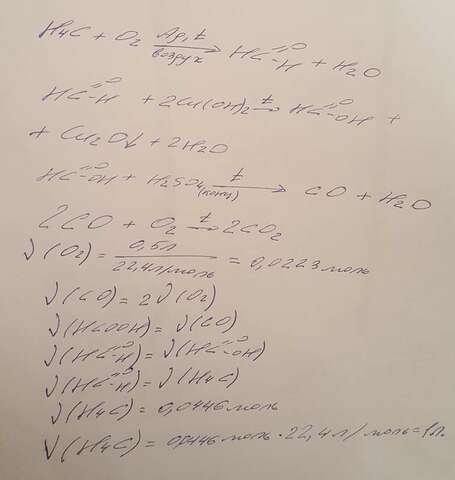 H₄C + O₂ Ag, t → воздух HC=O-H + H₂O
HC=O-H + 2Cu(OH)₂ t → HC=O-OH +
+ Cu₂O↓ + 2H₂O
HC=O-OH + H₂SO₄(конц) t → CO + H₂O
2CO + O₂ t → 2CO₂
ν(O₂) = 0,5л / 22,4л/моль = 0,0223моль
ν(CO) = 2ν(O₂)
ν(HCOOH) = ν(CO)
ν(HC=O-H) = ν(HC=O-OH)
ν(HC=O-H) = ν(H₄C)
ν(H₄C) = 0,0446моль
V(H₄C) = 0,0446моль · 22,4л/моль = 1л.